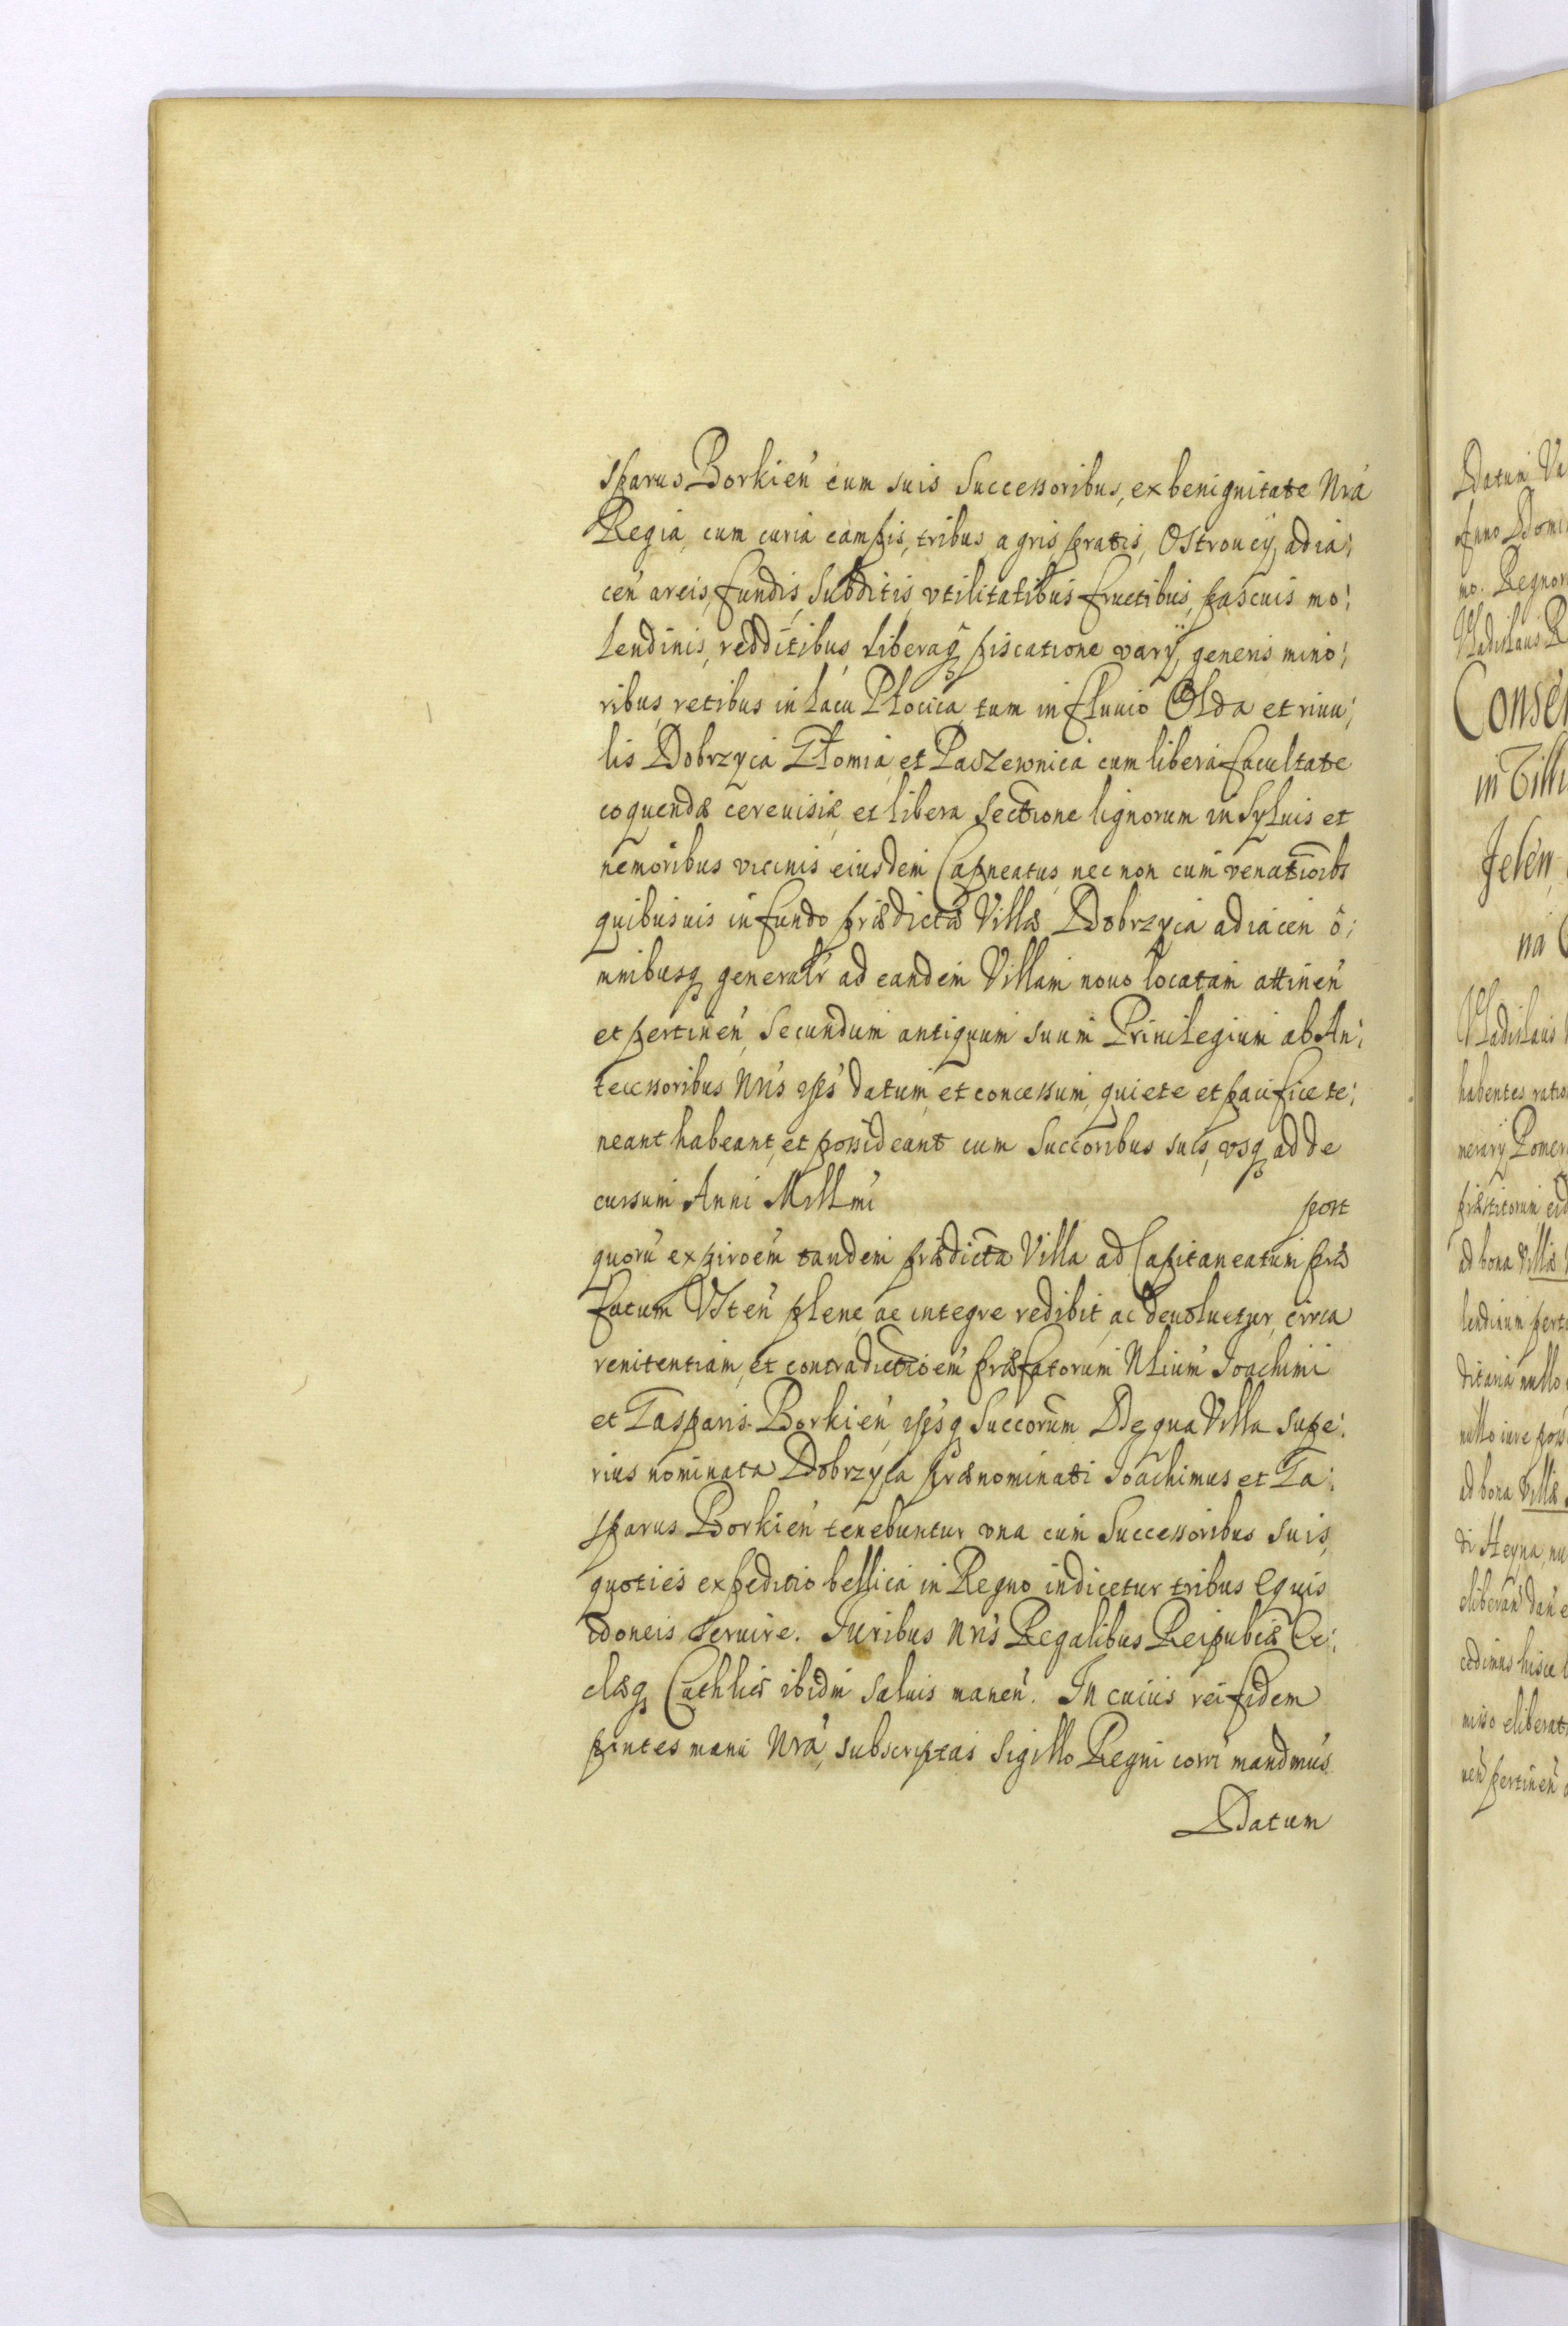 sparus Borkień cum suis Successoribus, ex benignitate Nrá
Regia, cum curia campis, tribus agris pratis, Ostroucÿ adia:
ceń areis, fundis, subditis, vtilitatibus fructibus, pascuis mo:
lendinis, redditibus liberaq piscatione varÿ generis mino:
ribus, retibus in lacu Płocica, tum in fluuio Olda et riuu:
lis Dobrzyca Płomia et Paszewnica cum libera facultate
coquendæ cereuisiæ et libera sectione lignorum in syluis et
nemoribus vicinis eiusdem Capneatus, nec non cum venationibs
quibusuis in fundo prædictæ Villæ Dobrzyca adiaceń o:
mnibusq generalr ad eandem Villam nouo locatam attineń
et pertineń, secundum antiquum suum Privilegium ab An:
tecessoribus Nris ipis datum, et concessum, quiete et pacifice te:
neant habeant, et possideant cum Succoribus suis, vsq ad de
cursum Anni Millmi post
quoru expiroem tandem prædicta Villa ad Capitaneatum præ
fatum Vsteń plene ac integre redibit, ac deuoluetur, circa
renitentiam, et contradictioem præfatorum Nlium Joachimi
et Casparis Borkień, ipisq Succorum De qua Villa supe:
rius nominata Dobrzyca prænominati Joachimus et Ca:
sparus Borkień tenebuntur vna cum Successoribus suis,
quoties expeditio bellica in Regno indicetur tribus equis
idoneis seruire. Iuribus Nris Regalibus Reipubcæ Ec:
clæq Cathlicæ ibidm saluis maneń. In cuius rei fidem
pntes manu Nrá, subscriptas Sigillo Regni comri mandmus.
Datum
Datum
Anno Domi
mo. Regnor
Vladislaus R
Consen
in Villi
Jeleń,
na
Vladislaus
habentes ratio
ad bona Villæ
ditaria nullo
nullo iure pos
ad bona Villæ
di Heyna, nu
cedimus hisce l
miso eliberat
neń pertineń